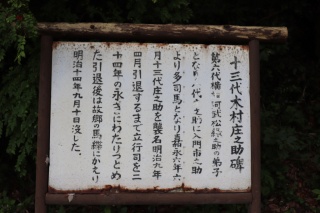 十三代木村庄之助碑
第六代横綱阿武松緑之助の弟子
となり八代式守伊之助に入門市之助
より多司馬となり嘉永六年六
月十三代庄之助を襲名明治九年
四月引退するまで立行司を二
十四年の永きにわたりつとめ
た引退後は故郷の馬緤にかえり
明治十四年九月十日没した。